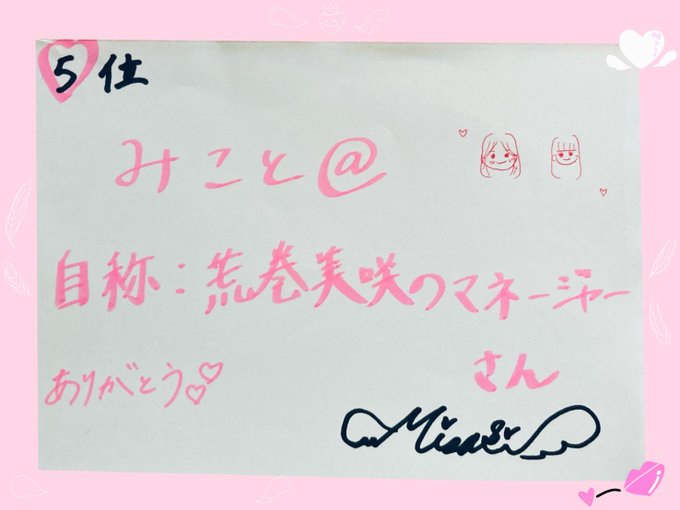 5仕
みこと@
自称:荒巻美咲のマネージャー
さん
ありがとう
Misaki